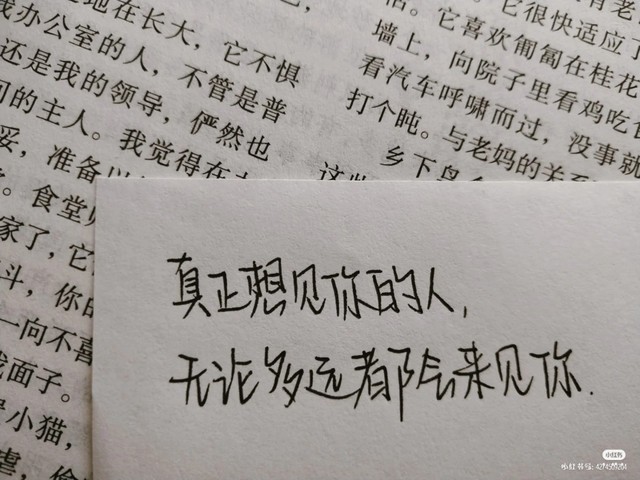 地在长大，它不惧
我办公室的人，不管是普
还是我的领导，俨然也
的主人。我觉得在
妥，准备以
食堂
家了，它
斗，你的
一向不喜
面子。
小猫，
虐，偷
它很快适应了
墙上，向院子里看鸡吃食
看汽车呼啸而过，没事就
打个盹。与老妈的关系
乡下
它喜欢匍匐在桂花
真正想见你的人，
无论多远都会来见你.
小红书
小红书号: